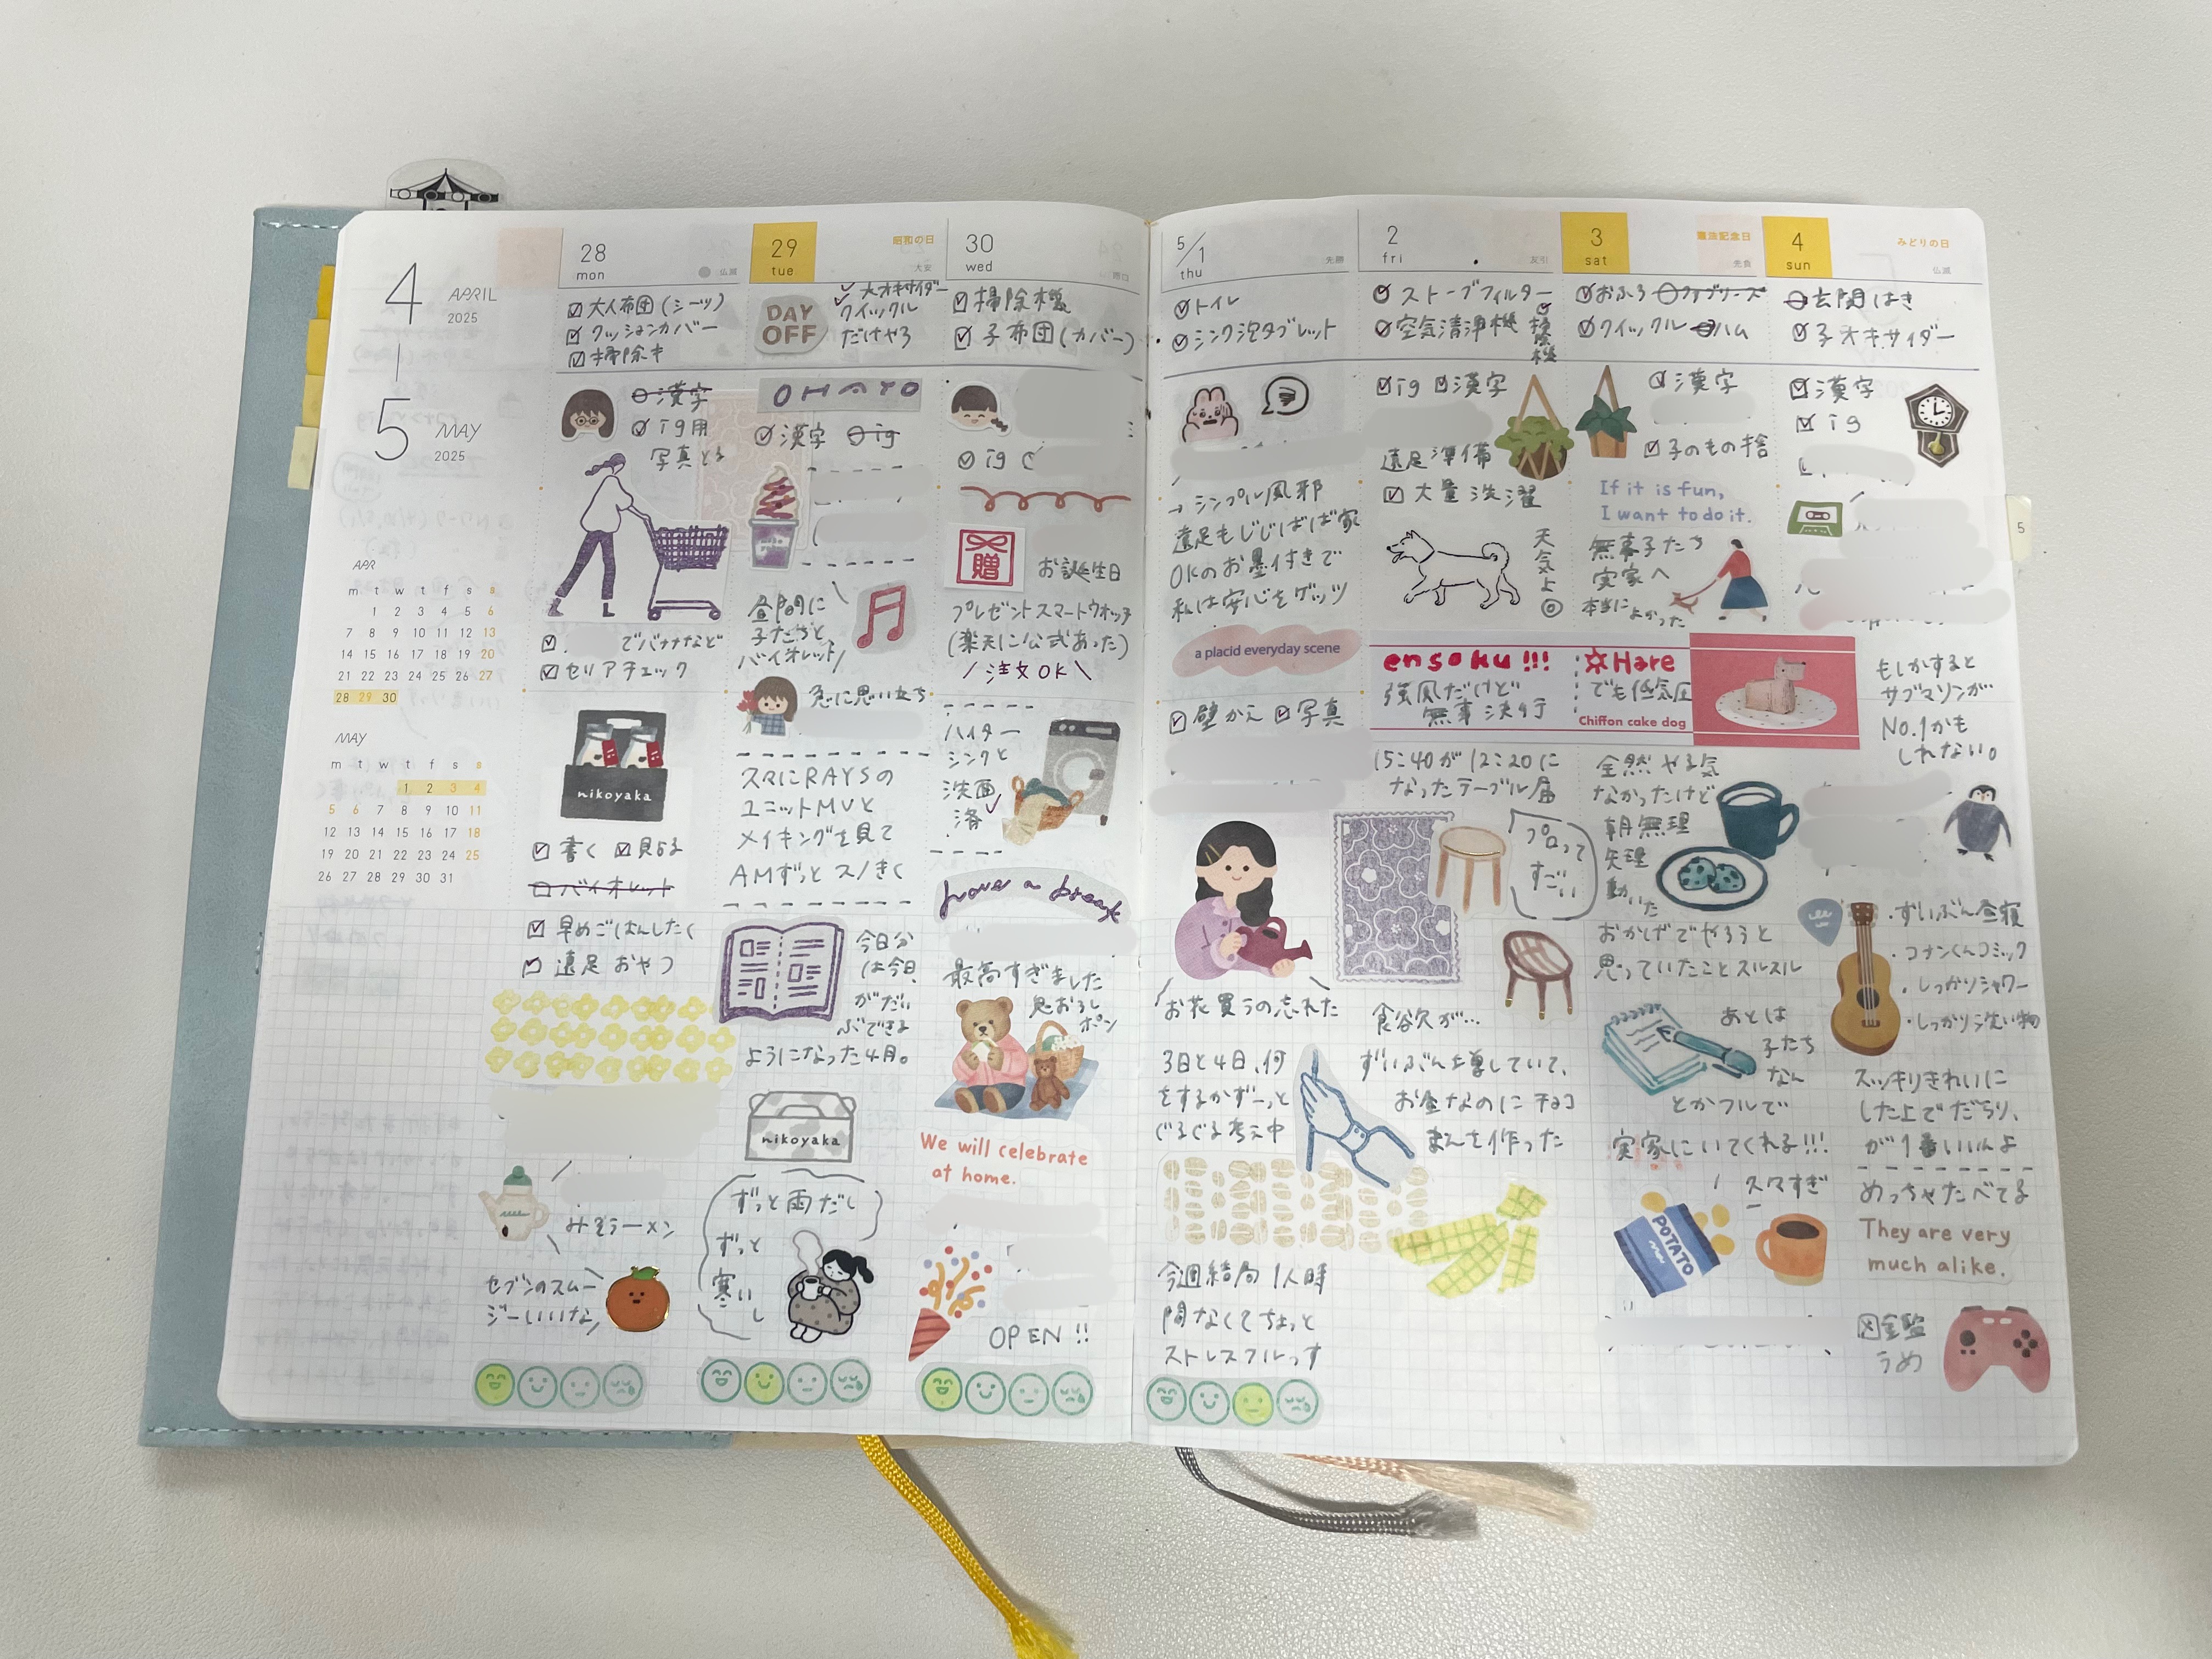 4 APRIL
2025
5 MAY
2025
APR
m t w t f s s
1 2 3 4 5 6
7 8 9 10 11 12 13
14 15 16 17 18 19 20
21 22 23 24 25 26 27
28 29 30
MAY
m t w t f s s
1 2 3 4
5 6 7 8 9 10 11
12 13 14 15 16 17 18
19 20 21 22 23 24 25
26 27 28 29 30 31
28
mon
仏滅
大人布団(シーツ)
クッションカバー
掃除キ
漢字
ig用
写真とる
でバナナなど
セリアチェック
nikoyaka
書く 見る
バイオレット
早めごはんしたく
遠足おやつ
みそラーメン
セブンのスムー
ジーいいな
29
tue
昭和の日
大安
DAY
OFF
大オキサイダー
クイックル
だけやろ
OHAYO
漢字 ig
昼間に
子たちと
バイオレット
急に思い立ち
久々にRAYSの
ユニットMVと
メイキングを見て
AMずっとスノきく
今日分
は今日
がだい
ぶできる
ようになった4月。
nikoyaka
ずっと雨だし
ずっと
寒いし
30
wed
掃除機
子布団(カバー)
ig
贈
お誕生日
プレゼントスマートウォッチ
(楽天に公式あった)
注文OK
ハイター
シンクと
洗面
済
have a break
最高すぎました
We will celebrate
at home.
OPEN!!
5/1
thu
先勝
トイレ
シンク泡タブレット
→シンプル風邪
遠足もじじばば家
OKのお墨付きで
私は安心をゲッツ
a placid everyday scene
壁かえ 写真
お花買うの忘れた
3日と4日、何
をするかずーっと
ぐるぐる考え中
今週結局1人時
間なくてちょっと
ストレスフルっす
2
fri
友引
ストーブフィルター
空気清浄機
掃除機
ig 漢字
遠足準備
大量洗濯
天気よ◎
ensoku!!!
強風だけど
無事決行
15:40が12:20に
なったテーブル届
プロって
すごい
食欲が…
ずいぶん増していて、
お昼なのにチョコ
まんを作った
3
sat
憲法記念日
先負
おふろ ファブリーズ
クイックル ハム
漢字
子のもの捨
If it is fun,
I want to do it.
無事子たち
実家へ
本当によかった
☼Hare
でも低気圧
Chiffon cake dog
全然やる気
なかったけど
朝無理
矢理
動いた
おかげでやろうと
思っていたことスルスル
あとは
子たち
なん
とかフルで
実家にいてくれる!!!
久々すぎ
POTATO
4
sun
みどりの日
仏滅
玄関はき
子オキサイダー
漢字
ig
もしかすると
サブマリンが
No.1かも
しれない。
・ずいぶん昼寝
・コナンくんコミック
・しっかりシャワー
・しっかり洗い物
スッキリきれいに
した上でだらり、
が1番いいんよ
めっちゃたべてる
They are very
much alike.
うめ
5